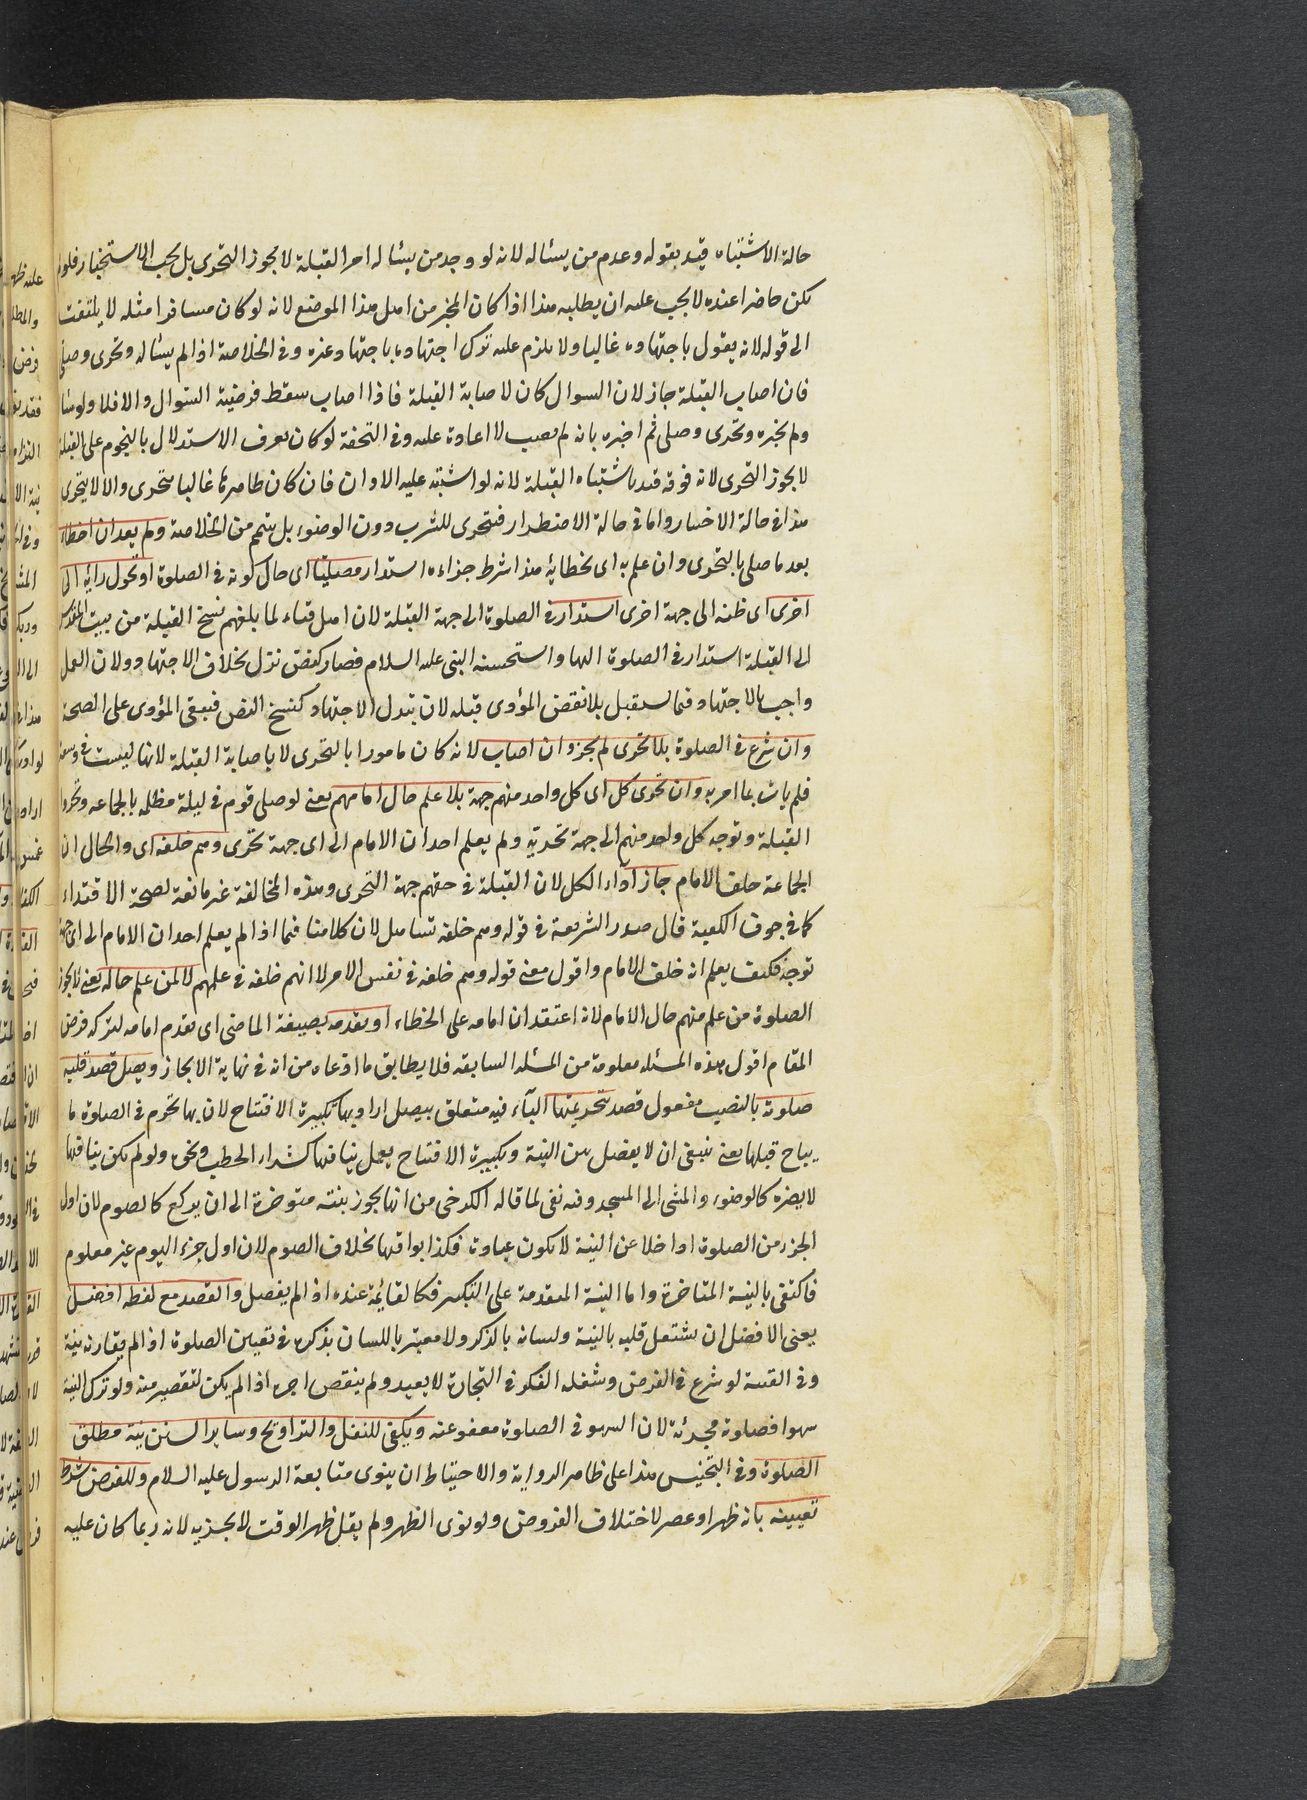 حالة الاشتباه قيد بقوله وعدم من يسئاله لانه لو وجد من يسئاله امر القبلة لا يجوز التحرى بل يجب الاستخبار فلو لم
يكن حاضرا عنده لا يجب عليه ان يطلبه هذا اذا كان المخبر من اهل هذا الموضع لانه لو كان مسافرا مثله لا يلتفت
الى قوله لانه يقول باجتهاده غالبا ولا يلزم عليه ترك اجتهاده باجتهاد غيره وفى الخلاصة اذا لم يسئاله وتحرى وصلى
فان اصاب القبلة جاز لان السوال كان لاصابة القبلة فاذا اصاب سقط فرضية السؤال والا فلا ولو سئا
ولم يخبره وتحرى وصلى ثم اخبره بانه لم يصب لا اعادة عليه وفى التحفة لو كان يعرف الاستدلال بالنجوم على القبلة
لا يجوز التحرى لانه فوقه قيد باشتباه القبلة لانه لو اشتبه عليه الاوان فان كان طاهرها غالبا يتحرى والا لا يتحرى
هذا فى حالة الاختيار واما فى حالة الاضطرار فيتحرى للشرب دون الوضوء بل يتيمم من الخلاصة ولم يعد ان اخطاء
بعد ما صلى بالتحرى وان علم به اى بخطائه هذا شرط جزاءه استدار مصليا اى حال كونه فى الصلوة او تحول رأيه الى
اخرى اى ظنه الى جهة اخرى استدار فى الصلوة الى جهة القبلة لان اهل قباء لما بلغهم نسخ القبلة من بيت المقدس
الى القبلة استدار فى الصلوة اليها واستحسنه النبى عليه السلام فصار كنص نزل بخلاف الاجتهاد ولان العمل
واجب بالاجتهاد فيما يستقبل بلا نقض المؤدى قبله لان تبدل الاجتهاد كنسخ النص فيبقى المؤدى على الصحة
وان شرع فى الصلوة بلا تحرى لم يجز وان اصاب لانه كان مامورا بالتحرى لا باصابة القبلة لانها ليست فى وسعه
فلم يات بما امر به وان تحرى كل اى كل واحد منهم جهة بلا علم حال امامهم يعنى لو صلى قوم فى ليلة مظلمة بالجماعه وتحروا
القبلة وتوجه كل واحد منهم الى جهة تحريه ولم يعلم احد ان الامام الى اى جهة تحرى وهم خلفه اى والحال ان
الجماعة خلف الامام جاز اداء الكل لان القبلة فى حقهم جهة التحرى وهذه المخالفة غير مانعة لصحة الاقتداء
كما فى جوف الكعبة قال صدر الشريعة فى قوله وهم خلفه تساهل لان كلامنا فيما اذا لم يعلم احد ان الامام الى اى جهة
توجه فكيف يعلم انه خلف الامام واقول معنى قوله وهم خلفه فى نفس الامر لا انهم خلفه فى علمهم لا لمن علم حاله يعنى لا يجوز
الصلوة من علم منهم حال الامام لانه اعتقد ان امامه على الخطاء او تقدمه بصيغة الماضى اى تقدم امامه لتركه فرض
المقام اقول هذه المسئله معلومة من المسئلة السابقه فلا يطابق ما ادعاه من انه فى نهاية الايجاز ويصل قصد قلبه
صلوته بالنصب مفعول قصد بتحريمتها الباء فيه متعلق بيصل اراد بها تكبيرة الافتتاح لان بها تحرم فى الصلوة ما
يباح قبلها يعنى ينبغى ان لا يفصل بين النية وتكبيرة الافتتاح بعمل ينافيها كشراء الحطب ونحوه ولو لم يكن ينافيها
لا يضره كالوضوء والمشى الى المسجد وفيه نفى لما قاله الكرخى من انها يجوز بنية متوخرة الى ان يركع كالصوم لان اول
الجزء من الصلوة اذا خلا عن النية لا يكون عبادة فكذا بواقيها بخلاف الصوم لان اول جزء اليوم غير معلوم
فاكتفى بالنية المتاخرة واما النية المتقدمة على التكبير فكالقائمة عنده اذا لم يفصل والقصد مع لفظه افضل
يعنى الافضل ان يشتغل قلبه بالنية ولسانه بالذكر ولا معتبر باللسان بذكره فى تعيين الصلوة اذا لم يقارنه نية
وفى القنية لو شرع فى الفرض وشغله الفكر فى التجارة لا يعيد ولم ينقص اجره اذا لم يكن لتقصير منه ولو ترك النية
سهوا فصلوة مجزئة لان السهو فى الصلوة معفو عنه ويكفى للنفل والتراويح وساير السنن نية مطلق
الصلوة وفى التجنيس هذا على ظاهر الرواية والاحتياط ان ينوى متابعة الرسول عليه السلام وللفرض شرط
تعيينه بانه ظهر او عصر لاختلاف الفروض ولو نوى الظهر ولم يقل ظهر الوقت لا يجزيه لانه ربما كان عليه